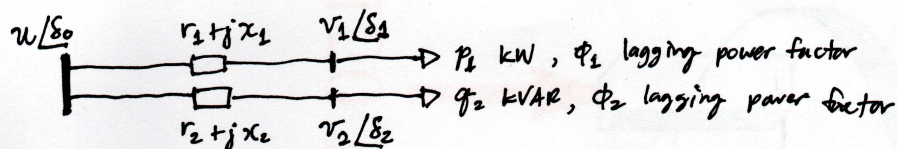 u∠δ₀ r₁+jx₁ v₁∠δ₁
P₁ kW, Φ₁ lagging power factor
q₂ kVAR, Φ₂ lagging power factor
r₂+jx₂ v₂∠δ₂